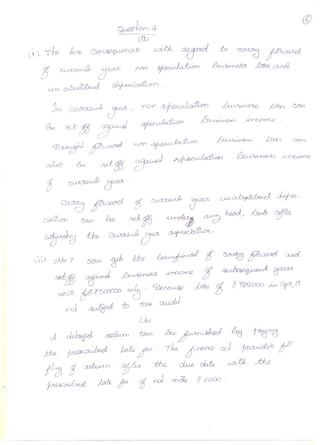 6
Question 4
(a)
(i) The tax consequences with regard to carry forward
of current year non speculation business loss and
un absorbed depreciation.
In current year, non speculation business loss can
be set off against speculation business income.
Brought forward non speculation business loss can
also be set off against speculation business income
of current year
Carry forward of current year unabsorbed depre-
ciation can be set off under any head, but after
adjusting the current year depreciation.
(ii) Mr. Y can get the beneficial of carry forward and
set off against business income of subsequent years
only. Because loss of in
not subject to tax audit
(b)
A delayed return can be furnished by paying
the prescribed late fee. The finance act provides for
filing of return after the due date with the
prescribed late fee of not more ₹